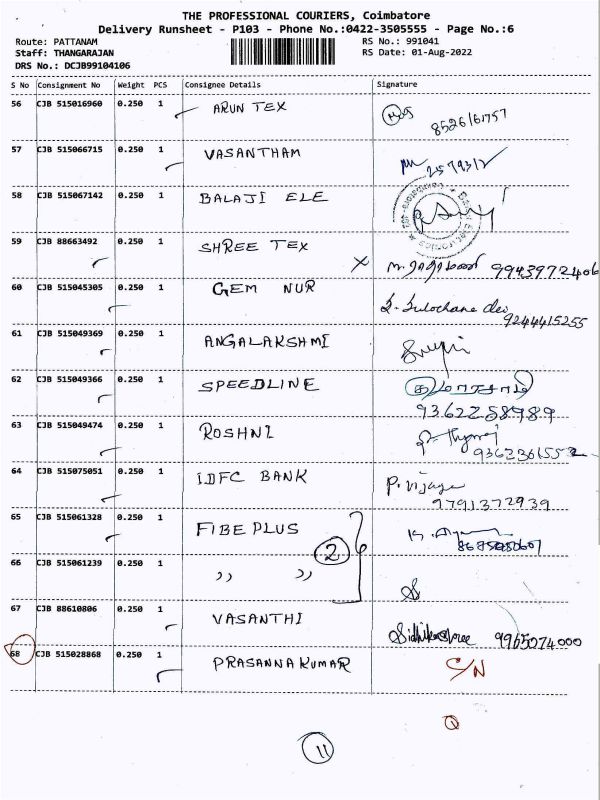 THE PROFESSIONAL COURIERS, Coimbatore
Delivery Runsheet - P103 - Phone No.:0422-3505555 - Page No.:6
Route: PATTANAM
RS No.: 991041
Staff: THANGARAJAN
RS Date: 01-Aug-2022
DRS No.: DCJB99104106
S No Consignment No Weight PCS Consignee Details Signature
56 CJB 515016960 0.250 1 ARUN TEX
57 CJB 515066715 0.250 1 VASANTHAM
58 CJB 515067142 0.250 1 BALAJI ELE
59 CJB 88663492 0.250 1 SHREE TEX 9943972406
60 CJB 515045305 0.250 1 GEM NUR
9244415255
61 CJB 515049369 0.250 1 ANGALAKSHMI
62 CJB 515049366 0.250 1 SPEEDLINE
9362258989
63 CJB 515049474 0.250 1 ROSHNI
64 CJB 515075051 0.250 1 IDFC BANK P. vijaya
9791372939
65 CJB 515061328 0.250 1 FIBE PLUS
2
66 CJB 515061239 0.250 1 ,, ,,
67 CJB 88610806 0.250 1 VASANTHI 9965074000
68 CJB 515028868 0.250 1 PRASANNA KUMAR C/N
11